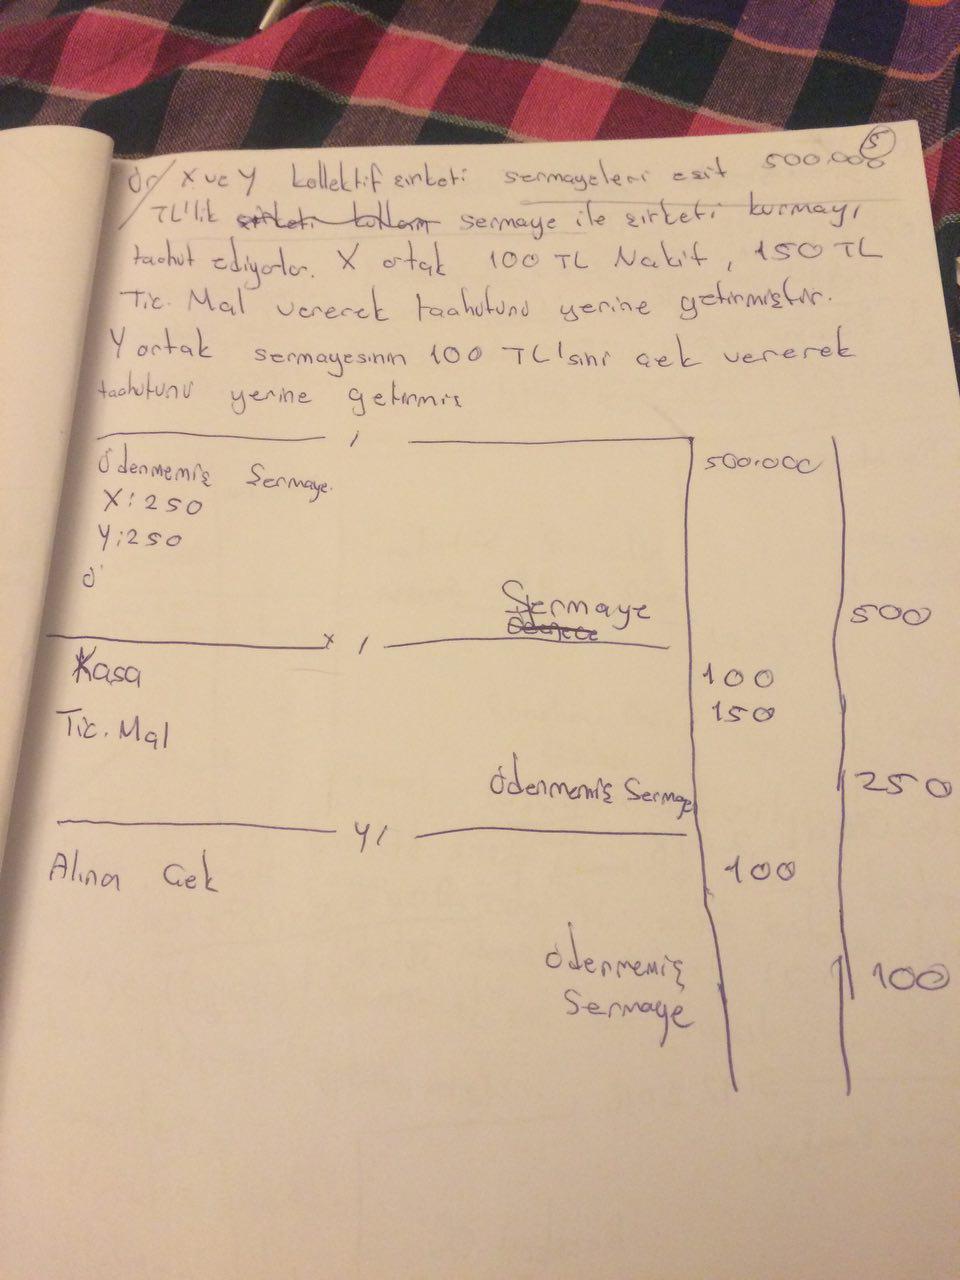 5
Ör/ X ve Y kollektif şirketi sermayeleri eşit 500.000
TL'lik şirketi sermaye ile şirketi kurmayı
taahut ediyorlar. X ortak 100 TL Nakit, 150 TL
Tic. Mal vererek taahutunu yerine getirmiştir.
Y ortak sermayesinin 100 TL'sini çek vererek
taahutunu yerine getirmiş
/
Ödenmemiş Sermaye. 500.000
X: 250
Y: 250
Ö
Sermaye 500
x /
Kasa 100
Tic. Mal 150
Ödenmemiş Sermaye 250
Y /
Alına Çek 100
Ödenmemiş 100
Sermaye